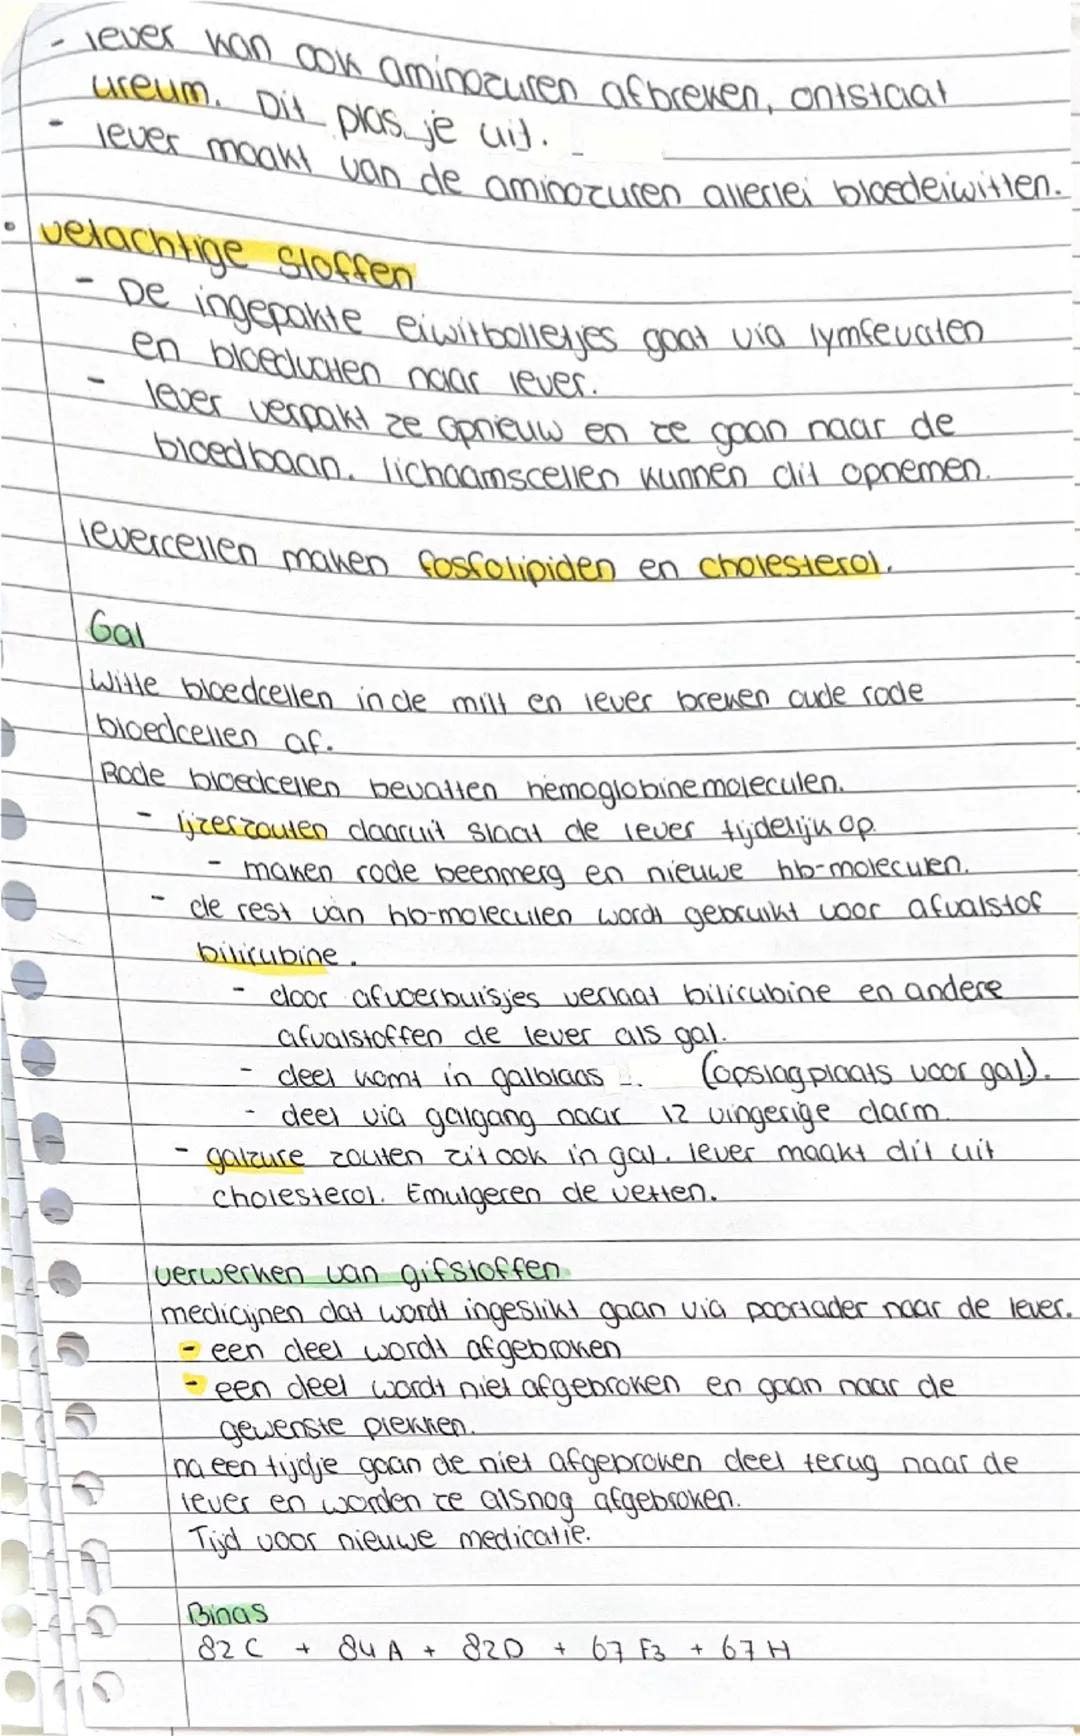 - lever kan ook aminozuren afbreken, ontstaat
ureum. Dit plas je uit.
- lever maakt van de aminozuren allerlei bloedeiwitten.
• vetachtige stoffen
- De ingepakte eiwitbolletjes gaat via lymfevaten
en bloedvaten naar lever.
- lever verpakt ze opnieuw en ze gaan naar de
bloedbaan. lichaamscellen kunnen dit opnemen.
levercellen maken fosfolipiden en cholesterol.
Gal
Witte bloedcellen in de milt en lever breken oude rode
bloedcellen af.
Rode bloedcellen bevatten hemoglobinemoleculen.
- ijzerzouten daaruit slaat de lever tijdelijk op.
- maken rode beenmerg en nieuwe hb-moleculen.
- de rest van hb-moleculen wordt gebruikt voor afvalstof
bilirubine.
- door afvoerbuisjes verlaat bilirubine en andere
afvalstoffen de lever als gal.
- deel komt in galblaas (opslagplaats voor gal).
- deel via galgang naar 12 vingerige darm.
- galzure zouten zit ook in gal. lever maakt dit uit
cholesterol. Emulgeren de vetten.
verwerken van gifstoffen
medicijnen dat wordt ingeslikt gaan via poortader naar de lever.
- een deel wordt afgebroken
- een deel wordt niet afgebroken en gaan naar de
gewenste plekken.
na een tijdje gaan de niet afgebroken deel terug naar de
lever en worden ze alsnog afgebroken.
Tijd voor nieuwe medicatie.
Binas
82 C + 84 A + 82D + 67 F3 + 67 H